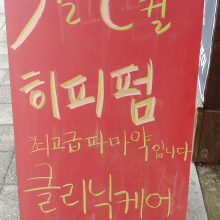 컬
히피펌
최고급파마약입니다
클리닉케어